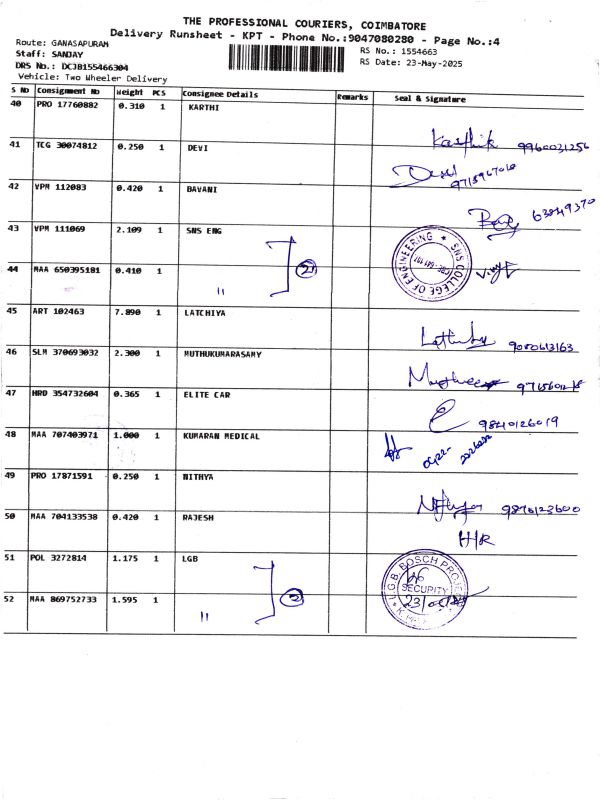 THE PROFESSIONAL COURIERS, COIMBATORE
Delivery Runsheet - KPT - Phone No.:9047080280 - Page No.:4
Route: GANASAPURAM
Staff: SANJAY
DRS No.: DCJB155466304
Vehicle: Two Wheeler Delivery
RS No.: 1554663
RS Date: 23-May-2025
S No Consignment No Weight PCS Consignee Details Remarks Seal & Signature
40 PRO 17760882 0.310 1 KARTHI
Karthik 9960031256
41 TCG 30074812 0.250 1 DEVI
Devi
42 VPM 112083 0.420 1 BAVANI
43 VPM 111069 2.109 1 SNS ENG
SNS COLLEGE OF ENGINEERING
2
44 MAA 650395181 0.410 1 "
45 ART 102463 7.890 1 LATCHIYA
9080613163
46 SLM 370693032 2.300 1 MUTHUKUMARASAMY
47 HRD 354732604 0.365 1 ELITE CAR
9840126019
48 MAA 707403971 1.000 1 KUMARAN MEDICAL
49 PRO 17871591 0.250 1 NITHYA
9876123600
50 MAA 704133538 0.420 1 RAJESH
H/R
51 POL 3272814 1.175 1 LGB
L.G.B. BOSCH
SECURITY
2
52 MAA 869752733 1.595 1 "